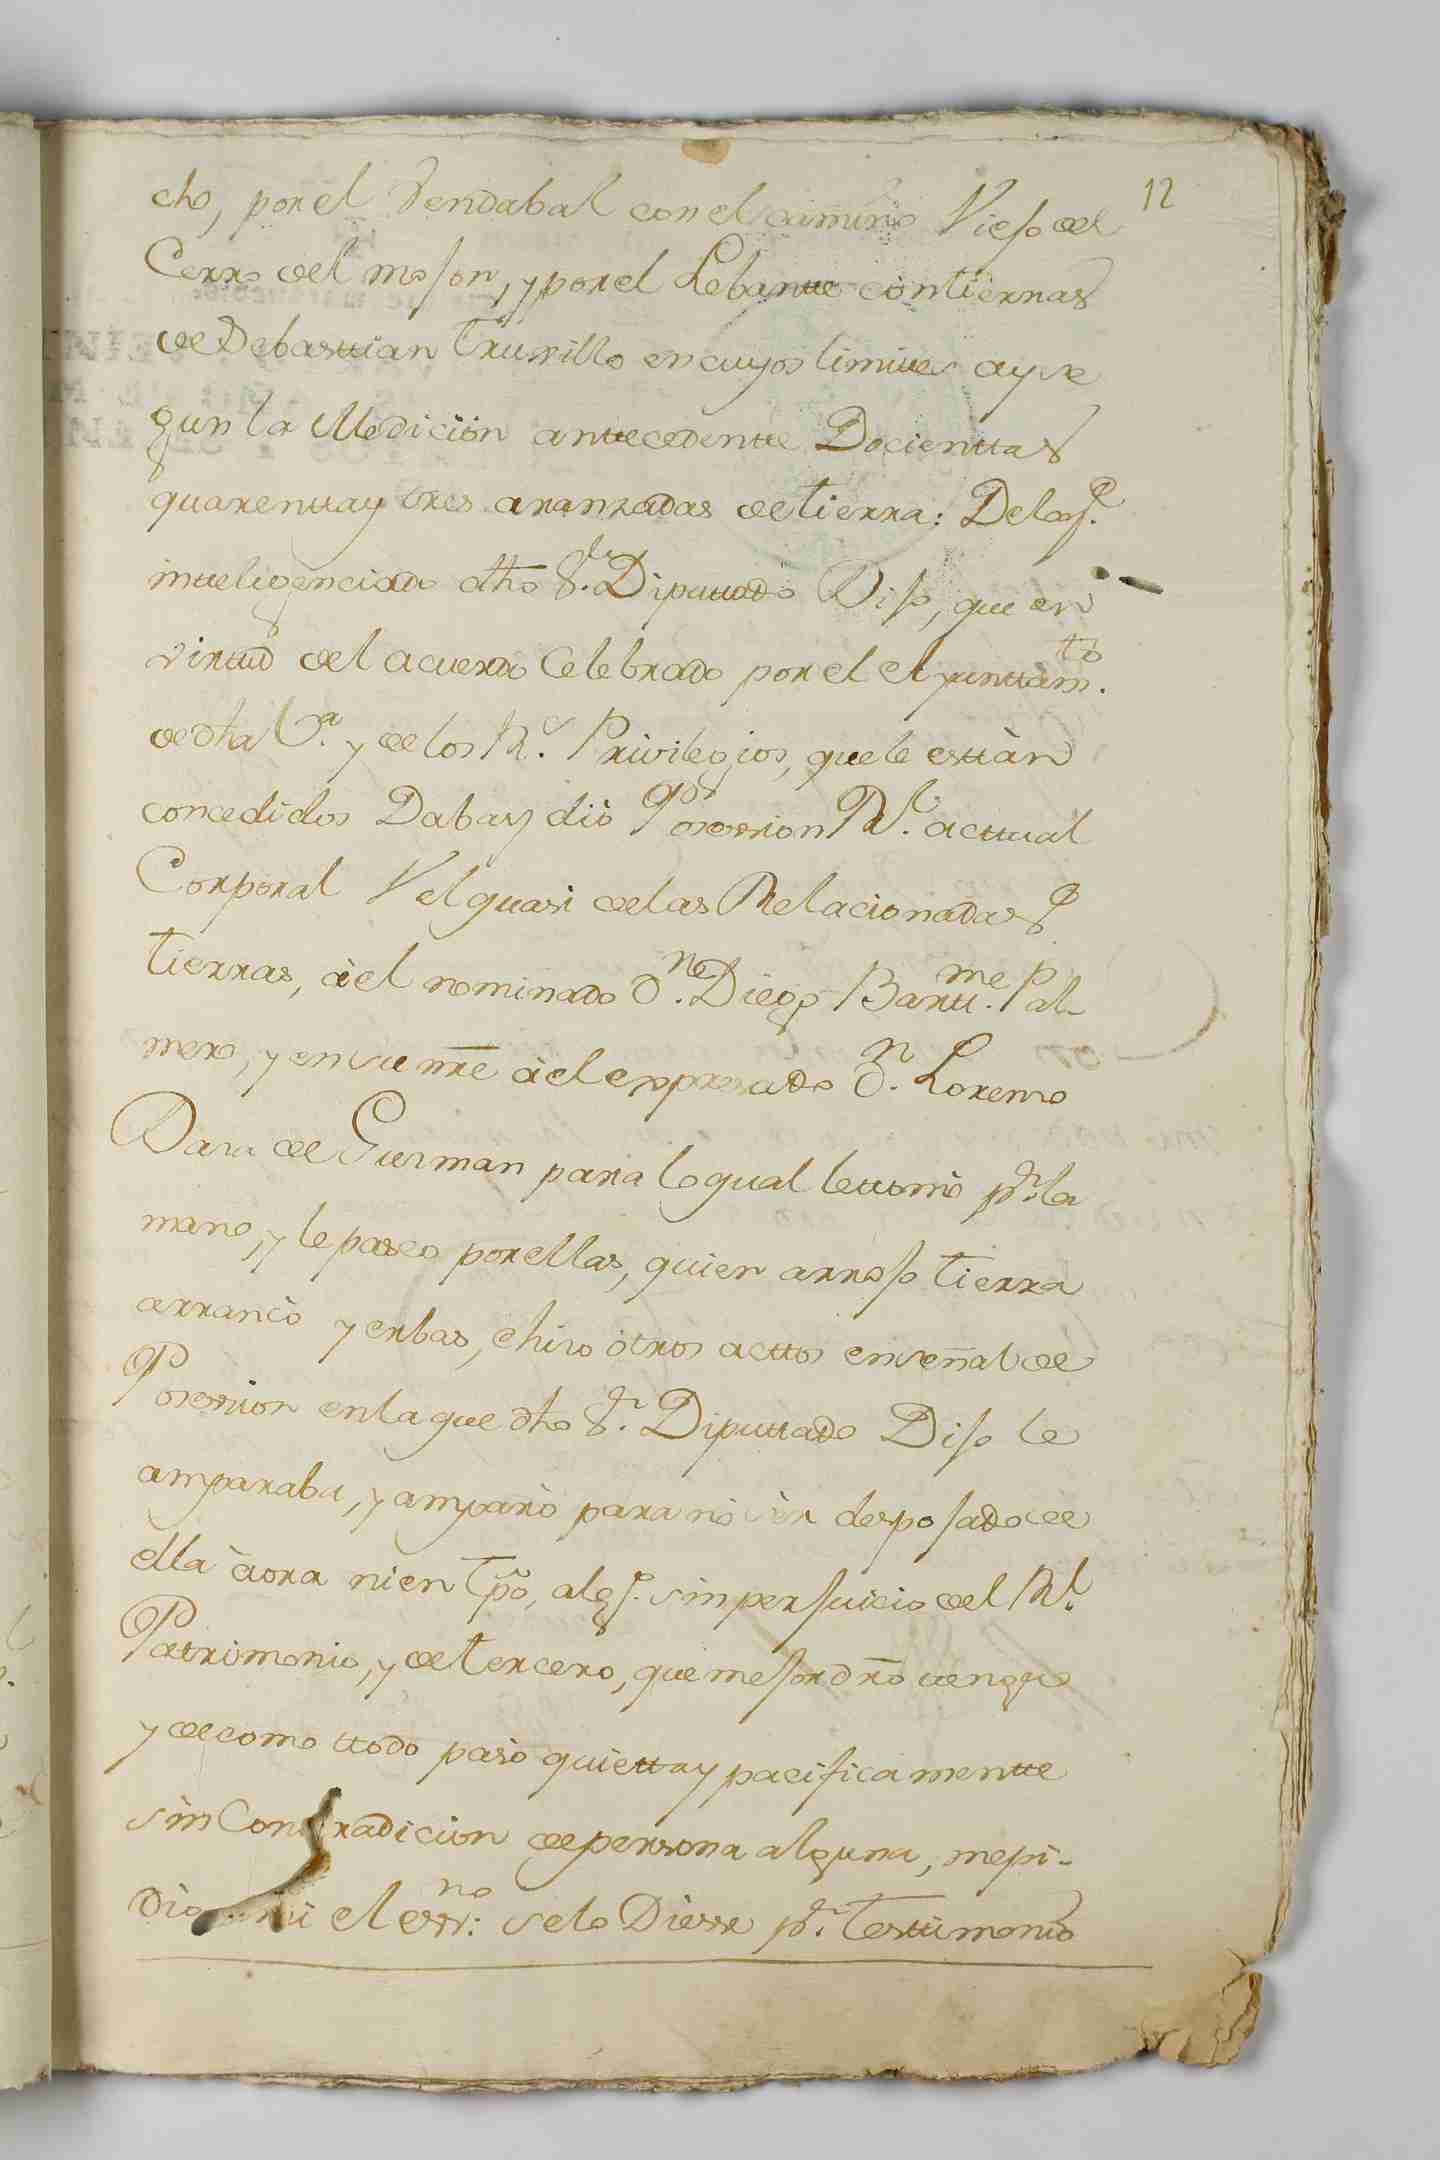 12
cho, por el Vendabal con el camino Viejo del
Cerro del mojon, y por el Lebante con tierras
de Sebasttian Truxillo en cuyos limites ay se
gun la Medicion anttecedentte Docienttas
quarentta y tres aranzadas de tierra: De la qe.
intteligenciado dho Sr. Diputtado Dijo, que en
virtud del acuerdo Celebrado por el Ayunttamto.
de dha Va. y de los Rs. Privilegios, que le esttàn
concedidos Daba y diò Posession Rl. acttual
Corporal Vel quasi de las Relacionadas
tierras, à el nominado Dn. Diego Barttme. Pal-
mero, y en su nre à el expresado Dn. Lorenzo
Daza de Gusman para lo qual le ttomò pr. la
mano, y le paseo por ellas, quien arrojo tierra
arrancò yerbas, e hizo otros acttos en señal de
Posession en la que dho Sr. Diputtado Dijo le
amparaba, y amparò para no ser desposado de
ella àora ni en tpo, algo. sin perjuicio del Rl.
Patrimonio, y de tercero, que mejor dro tenga
y de como ttodo pasò quietta y pacificamentte
sin Contradicion de persona alguna, me pi-
diò mi el essno: se lo Diesse pr. testtimonio